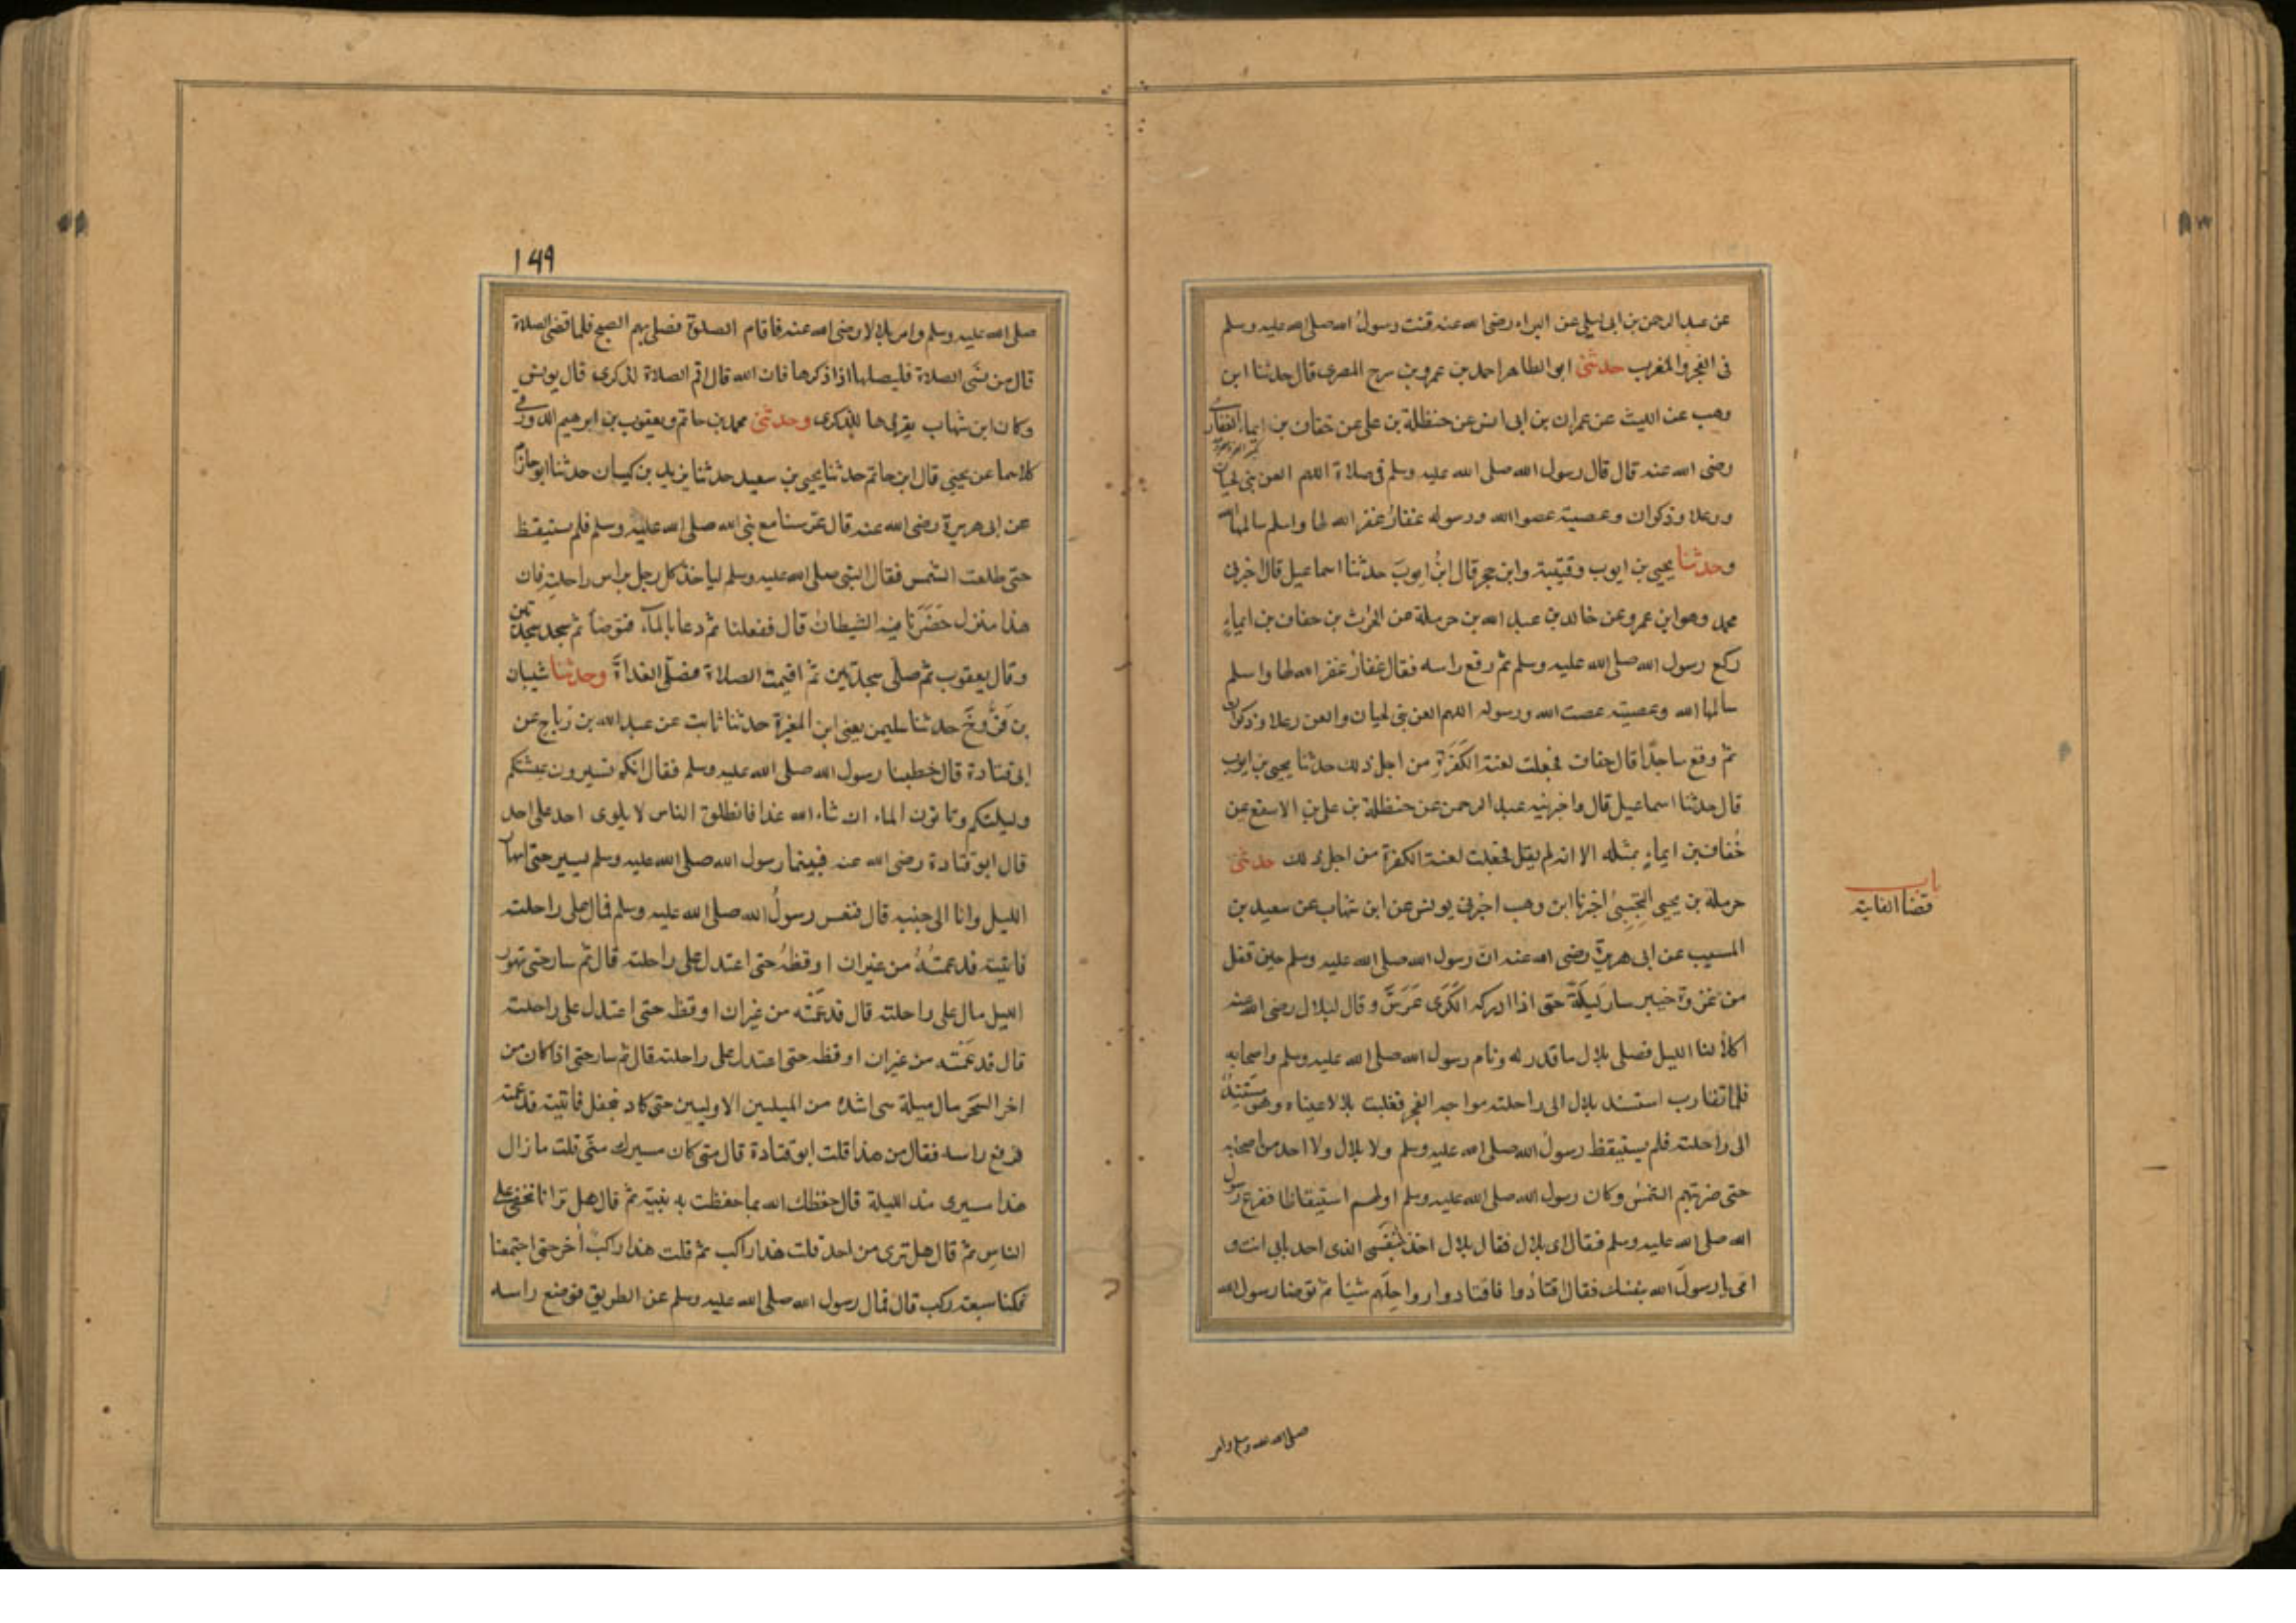 عن عبد الرحمن بن ابى ليلى عن البراء رضى الله عنه قنت رسول الله صلى الله عليه وسلم
فى الفجر والمغرب حدثنى ابو الطاهر احمد بن عمرو بن سرح المصرى قال حدثنا ابن
وهب عن الليث عن عمران بن ابى انس عن حنظلة بن على عن خفاف بن ايماء الغفارى
رضى الله عنه قال قال رسول الله صلى الله عليه وسلم فى صلاة اللهم العن بنى لحيان
ورعلا وذكوان وعصية عصوا الله ورسوله غفار غفر الله لها واسلم سالمها الله
وحدثنا يحيى بن ايوب وقتيبة وابن حجر قال ابنُ ايوبَ حدثنا اسماعيل قال اخبرنى
محمد وهو ابن عمرو عن خالد بن عبد الله بن حرملة عن الحرث بن خفاف بن ايماءٍ
ركع رسول الله صلى الله عليه وسلم ثم رفع راسه فقال غفارُ غفر الله لها واسلم
سالمها الله وعصيته عصت الله ورسوله اللهم العن بنى لحيان والعن رعلا وذكوان
ثم وقع ساجدًا قال خفاف فجعلت لعنة الكَفَرَةِ من اجل ذلك حدثنا يحيى بن ايوب
قال حدثنا اسماعيل قال واخبرنيه عبد الرحمن عن حنظلة بن على بن الاسقع عن
خُفاف بن ايماءٍ بمثله الا انه لم يقل فجعلت لعنة الكفرة من اجل ذلك حدثنى
حرملة بن يحيى التجيبىُّ اخبرنا ابن وهب اخبرنى يونس عن ابن شهاب عن سعيد بن
المسيب عن ابى هريرة رضى الله عنه انّ رسول الله صلى الله عليه وسلم حين قفل
من غزوة خيبر سار لَيلَةً حتى اذا ادركه الكَرَى عَرَّسَ وقال لبلال رضى الله عنه
اكلأ لنا الليل فصلى بلال ما قدر له ونام رسول الله صلى الله عليه وسلم واصحابه
فلما تقارب استند بلال الى راحلته مواجه الفجر فغلبت بلالا عيناه وهو مستندٌ
الى راحلته فلم يستيقظ رسولُ الله صلى الله عليه وسلم ولا بلال ولا احد من اصحابه
حتى ضربتهم الشمسُ وكان رسول الله صلى الله عليه وسلم اولهم استيقاظا ففزع رسول
الله صلى الله عليه وسلم فقال اى بلال فقال بلال اخذ بنَفَسِى الذى اخذ بابى انت و
امى يا رسولَ الله بنفسك فقال اقتادُوا فاقتادوا رواحِلَهم شيئا ثم توضا رسول الله
باب
قضا الفايتة
صلى الله عليه وسلم وامر
149
صلى الله عليه وسلم وامر بلالا رضى الله عنه فاقام الصلوة فصلى بهم الصبح فلما قضى الصلاة
قال من نسَى الصلاة فليصلها اذا ذكرها فان الله قال اقم الصلاة لذكرى قال يونس
وكان ابن شهاب يقرؤها للذكرى وحدثنى محمد بن حاتم ويعقوب بن ابرهيم الدورقى
كلاهما عن يحيى قال ابن حاتم حدثنا يحيى بن سعيد حدثنا يزيد بن كيسان حدثنا ابو حازم
عن ابى هريرة رضى الله عنه قال عرسنا مع نبى الله صلى الله عليه وسلم فلم نستيقظ
حتى طلعت الشمس فقال النبى صلى الله عليه وسلم لياخذ كل رجل براس راحلته فان
هذا منزل حَضَرَنا فيه الشيطان قال ففعلنا ثم دعا بالماء فتوضأ ثم سجد سجدتين
وقال يعقوب ثم صلّى سجدتين ثم اقيمت الصلاة فصلّى الغداةَ وحدثنا شيبان
بن فرُّوخَ حدثنا سليمن يعنى ابن المغيرة حدثنا ثابت عن عبد الله بن رَباح عن
ابى قتادة قال خطبنا رسول الله صلى الله عليه وسلم فقال انكم تسيرون عشيتكم
وليلتكم وتاتون الماء ان شاء الله غدا فانطلق الناس لا يلوى احد على احد
قال ابو قتادة رضى الله عنه فبينما رسول الله صلى الله عليه وسلم يسير حتى ابهار
الليل وانا الى جنبه قال فنعس رسولُ الله صلى الله عليه وسلم فمال على راحلته
فاتيته فدعمتُهُ من غير ان اوقظهُ حتى اعتدل على راحلته قال ثم سار حتى تهور
الليل مال على راحلته قال فدعَمته من غير ان اوقظه حتى اعتدل على راحلته
قال فدعَمْته من غير ان اوقظه حتى اعتدل على راحلته قال ثم سار حتى اذا كان من
اخر السَّحَر مال ميلة هى اشد من الميلتين الاوليين حتى كاد ينجفل فاتيته فدعمته
فرفع راسه فقال من هذا قلت ابو قتادة قال متى كان مسيرك منّى قلت ما زال
هذا مسيرى منذ الليلة قال حفظك الله بما حفظت به نبيه ثم قال هل ترانا نخفى على
الناس ثم قال هل ترى من احد قلت هذا راكب ثم قلت هذا راكبٌ اٰخر حتى اجتمعنا
فكنا سبعة ركب قال فمال رسول الله صلى الله عليه وسلم عن الطريق فوضع راسه